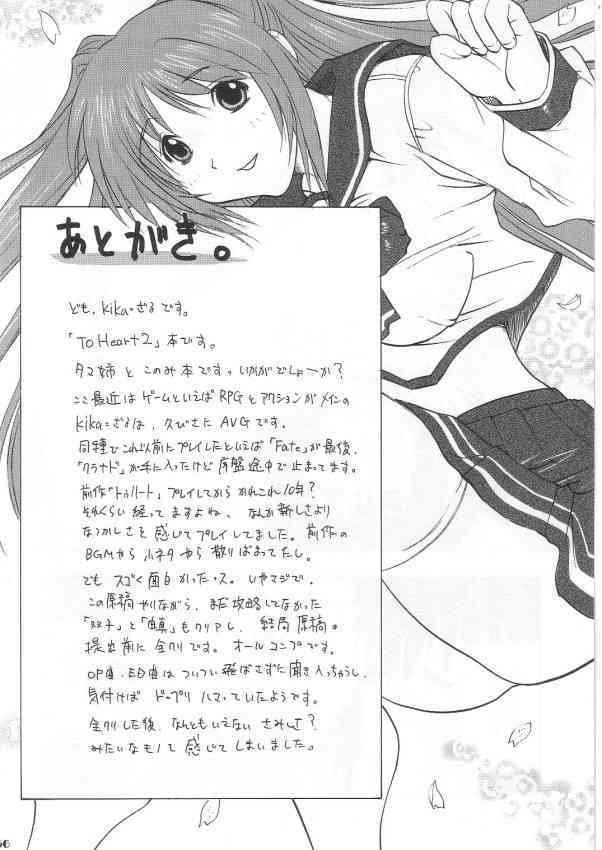 あとがき。
ども、kika=ざるです。
「To Heart2」本です。
タマ姉とこのみ本ですッ、いかがでしょーか?
ここ最近はゲームといえばRPGとアクションがメインの
kika=ざるは、久びさにAVGです。
同種でこれ以前にプレイしたといえば「Fate」が最後、
「クラナド」が手に入ったけど序盤途中で止まってます。
前作「トゥハート」プレイしてからかれこれ10年?
それくらい経ってますよね、なんか新しさより
なつかしさを感じてプレイしてました。前作の
BGMやら小ネタやら散りばまってたし。
でもスゴく面白かったッス。いやマジで。
この原稿やりながら、まだ攻略してなかった
「双子」と「由真」もクリアし、結局原稿。
提出前に全クリです。オールコンプです。
OP曲、ED曲はついつい飛ばさずに聞き入っちゃうし、
気付けばドップリハマっていたようです。
全クリした後、なんともいえないさみしさ?
みたいなモノまで感じてしまいました。